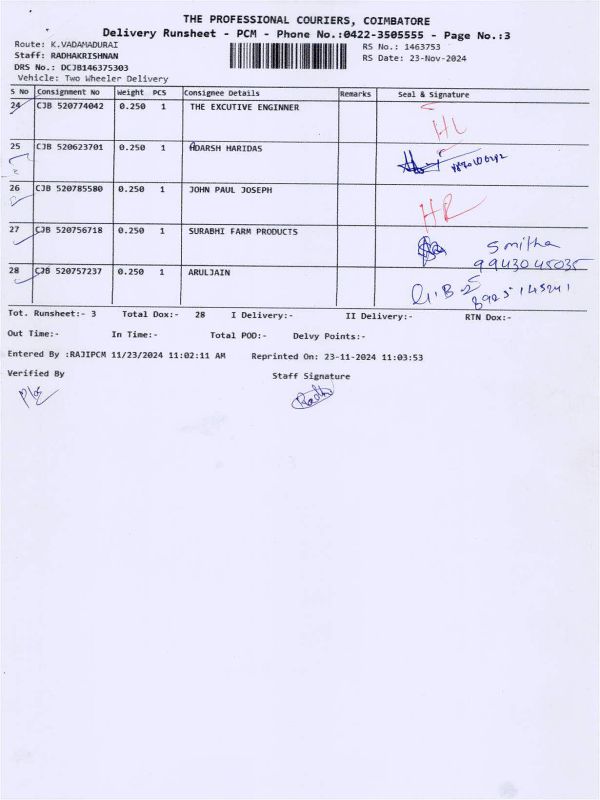 THE PROFESSIONAL COURIERS, COIMBATORE
Delivery Runsheet - PCM - Phone No.:0422-3505555 - Page No.:3
Route: K.VADAMADURAI RS No.: 1463753
Staff: RADHAKRISHNAN RS Date: 23-Nov-2024
DRS No.: DCJB146375303
Vehicle: Two Wheeler Delivery
S No Consignment No Weight PCS Consignee Details Remarks Seal & Signature
24 CJB 520774042 0.250 1 THE EXCUTIVE ENGINNER
HL
25 CJB 520623701 0.250 1 ADARSH HARIDAS
26 CJB 520785580 0.250 1 JOHN PAUL JOSEPH
HR
27 CJB 520756718 0.250 1 SURABHI FARM PRODUCTS
Smitha
9943045035
28 CJB 520757237 0.250 1 ARULJAIN
Tot. Runsheet:- 3 Total Dox:- 28 I Delivery:- II Delivery:- RTN Dox:-
Out Time:- In Time:- Total POD:- Delvy Points:-
Entered By :RAJIPCM 11/23/2024 11:02:11 AM Reprinted On: 23-11-2024 11:03:53
Verified By Staff Signature
Radhi